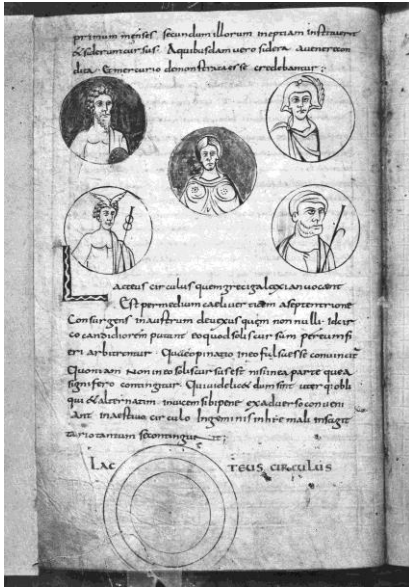 primum menses secundum illorum ineptiam instruerent
& siderum cursus. A quibusdam vero sidera a venere con
dita & mercurio demonstrata esse credebantur;
Lacteus circulus quem greci galaxian vocant
Est per medium caeli verticem a septentrione
Consurgens in austrum devexus quem non nulli idcir
co candidiorem putant eo quod solis cursum per eum fi
eri arbitrentur. Quae opinatio esse convincit
Quoniam Non in eo solis cursus est nisi in ea parte qua a
signifero contingitur. Qui videlic& dum sint uterq obli
qui & alternatim invicem sibi pene ex adverso conveni
ant In aestivo circulo In geminis in hiemali in sagit
tario tantum se contingunt;
LAC TEUS CIRCULUS